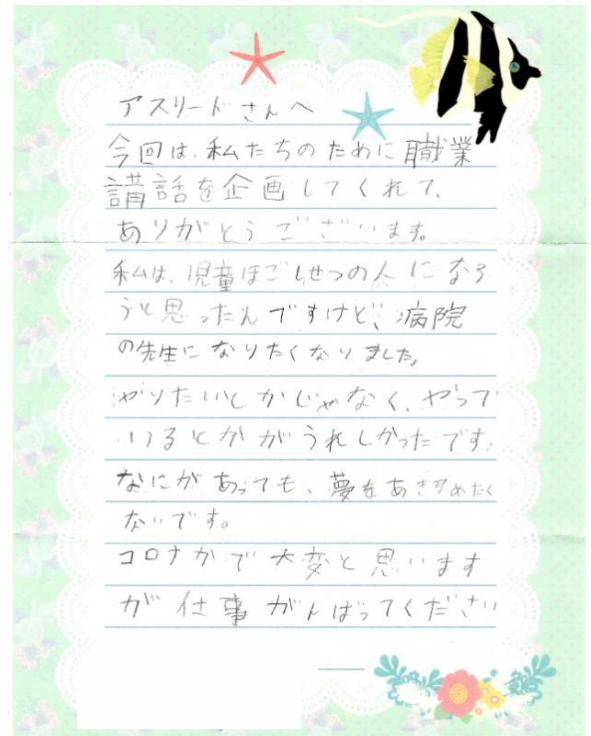 アスリードさんへ
今回は、私たちのために職業
講話を企画してくれて、
ありがとうございます。
私は、児童ほごしせつの人になろ
うと思ったんですけど、病院
の先生になりたくなりました。
やりたいしかじゃなく、やって
いるとかがうれしかったです。
なにがあっても、夢をあきらめたく
ないです。
コロナかで大変と思います
が仕事がんばってください